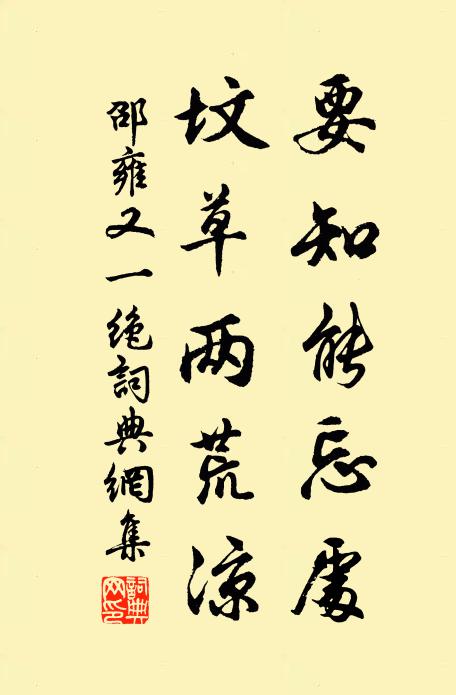 要知能忘處
坟草两荒凉
邵雍又一绝詞典網集
詞典网印